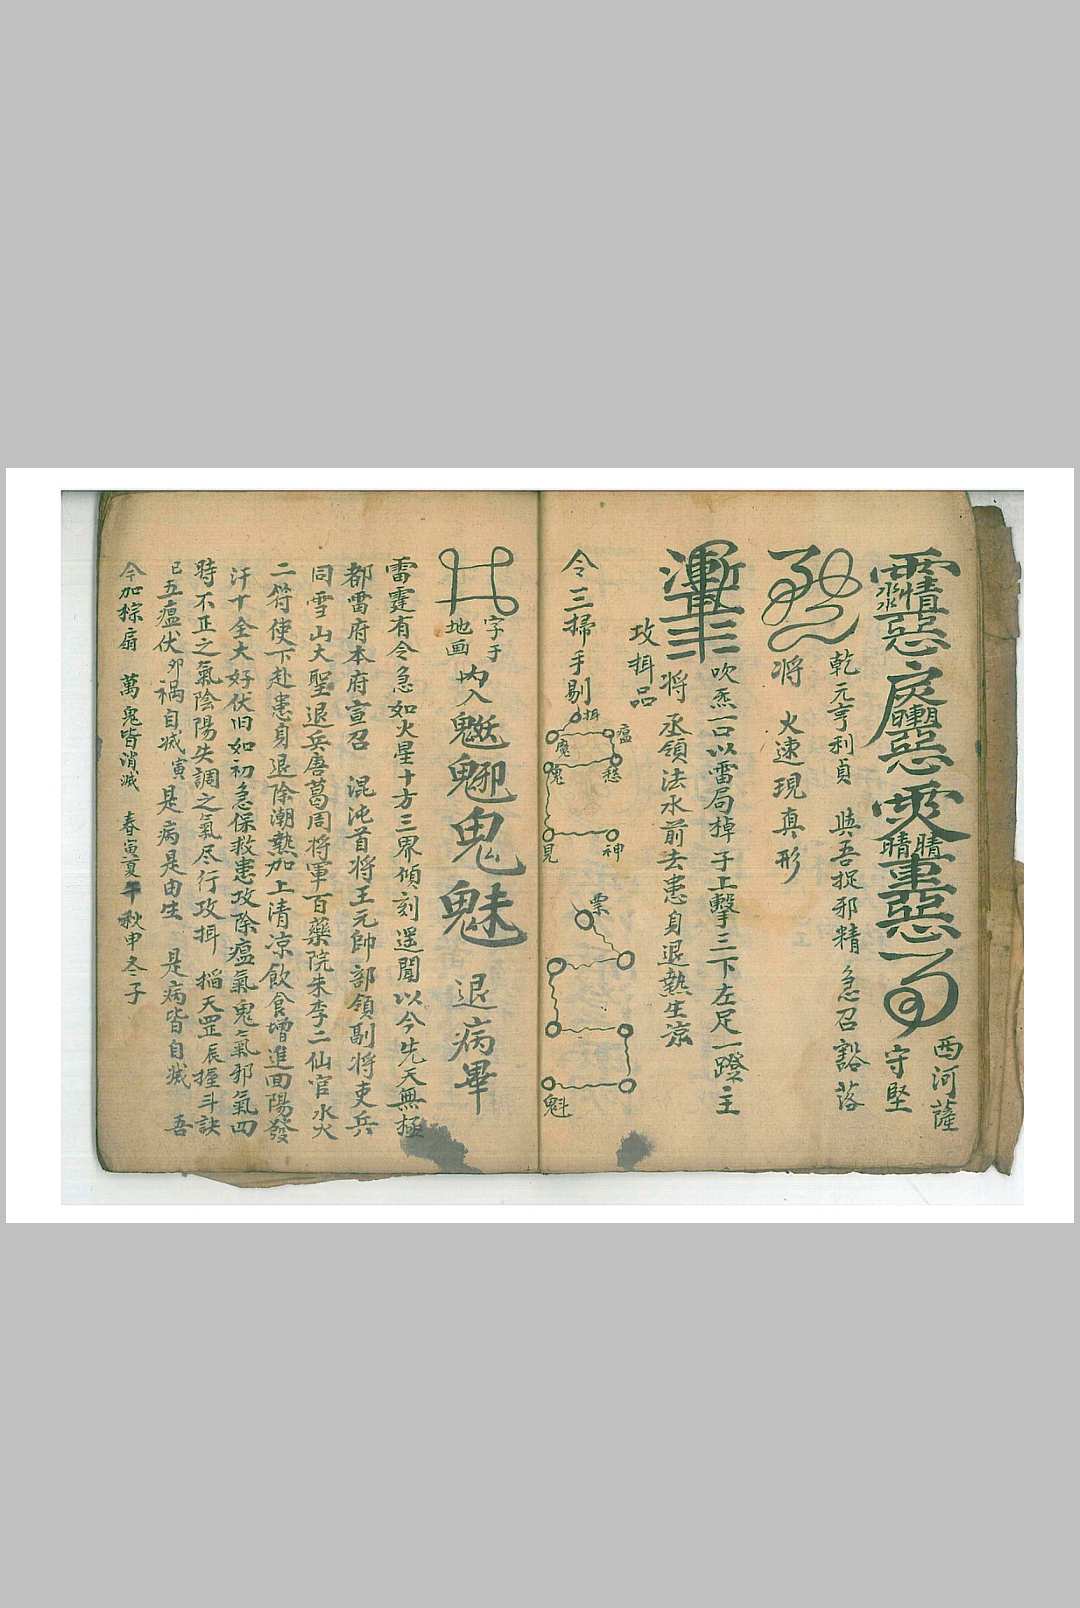 西河薩
守堅
乾元亨利貞 與吾捉邪精 急召豁落
將 火速現真形
吹炁一口以雷局掉子上擊三下左足一蹬主
將 丞領法水前去患身退熱生凉
攻揖品
令三掃手剔
揖
瘟
魔
神
票
魁
字于
地画
内入
鬼魅 退病畢
雷霆有令急如火星十方三界傾刻遥聞以今先天無極
都雷府本府宣召 混沌首將王元帥部領副將吏兵
同雪山大聖退兵唐葛周將軍百藥院朱李二仙官水火
二符使下赴患身退除潮熱加上清凉飲食增進回陽發
汗十全大好伏旧如初急保救患攻除瘟氣鬼氣邪氣四
時不正之氣陰陽失調之氣尽行攻揖 招天罡辰握斗訣
已五瘟伏卯祸自滅寅是病是由生 是病皆自滅 吾
今加棕扇 萬鬼皆消滅 春寅夏午秋申冬子